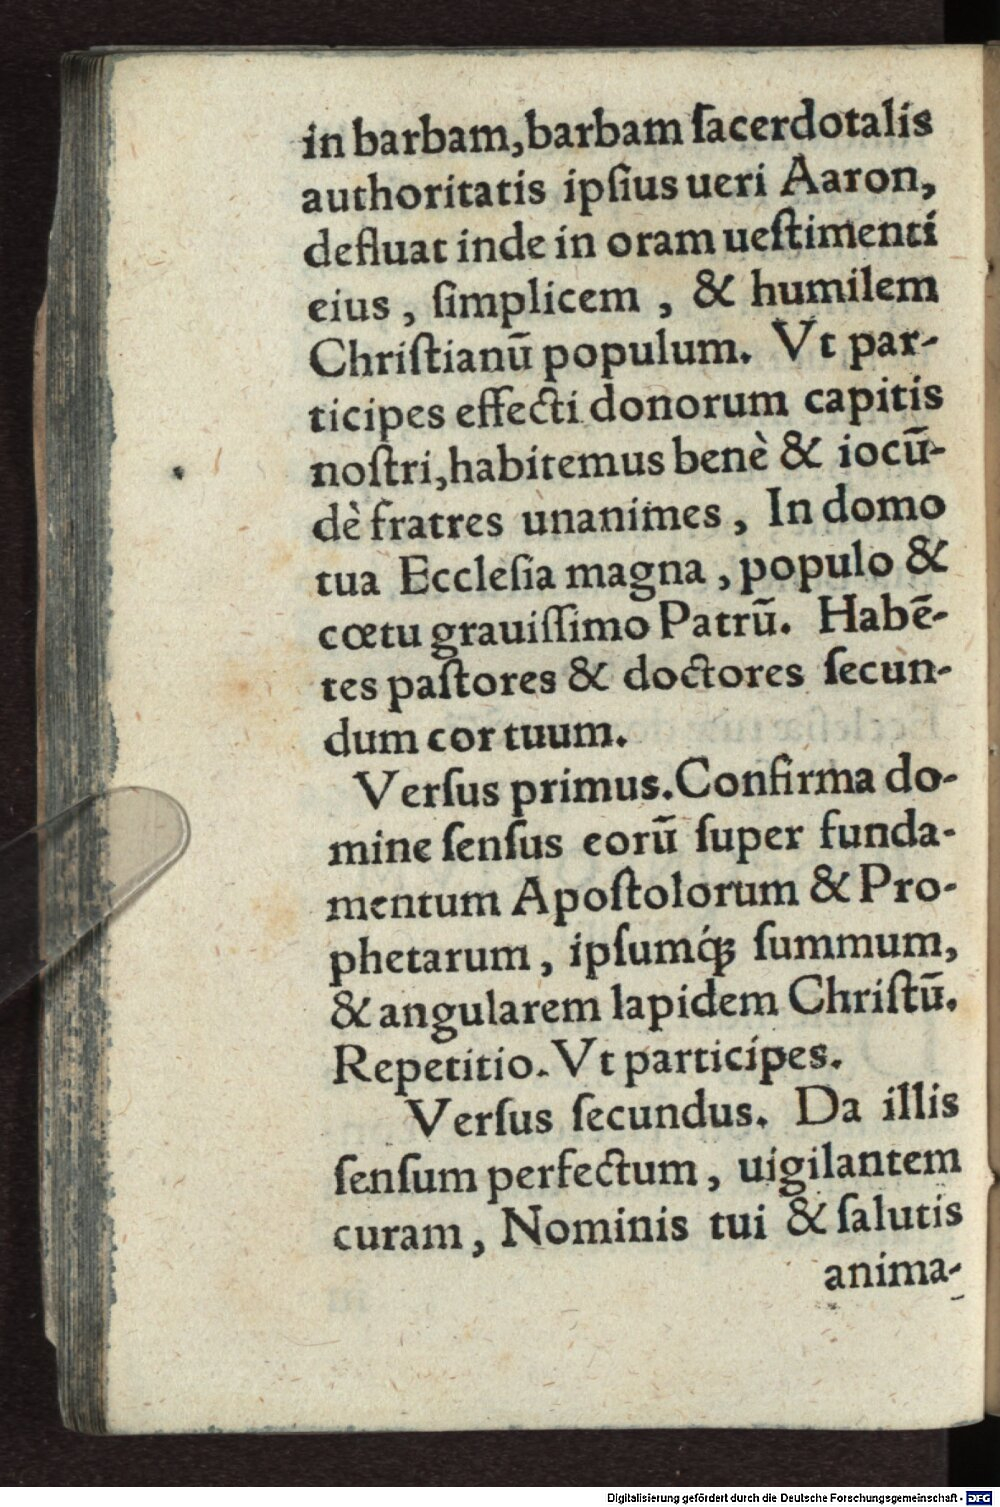 in barbam,barbam ſacerdotalis
authoritatis ipſius ueri Aaron,
defluat inde in oram ueſtimenti
eius , ſimplicem , & humilem
Chriſtianū populum. Vt par-
ticipes effecti donorum capitis
noſtri,habitemus benè & iocū-
dè fratres unanimes , In domo
tua Eccleſia magna , populo &
cœtu grauiſſimo Patrū. Habē-
tes paſtores & doctores ſecun-
dum cor tuum.
Verſus primus.Confirma do-
mine ſenſus eorū ſuper funda-
mentum Apoſtolorum & Pro-
phetarum , ipſumq́ꝫ ſummum,
& angularem lapidem Chriſtū.
Repetitio. Vt participes.
Verſus ſecundus. Da illis
ſenſum perfectum , uigilantem
curam , Nominis tui & ſalutis
anima-
Digitalisierung gefördert durch die Deutsche Forschungsgemeinschaft - DFG